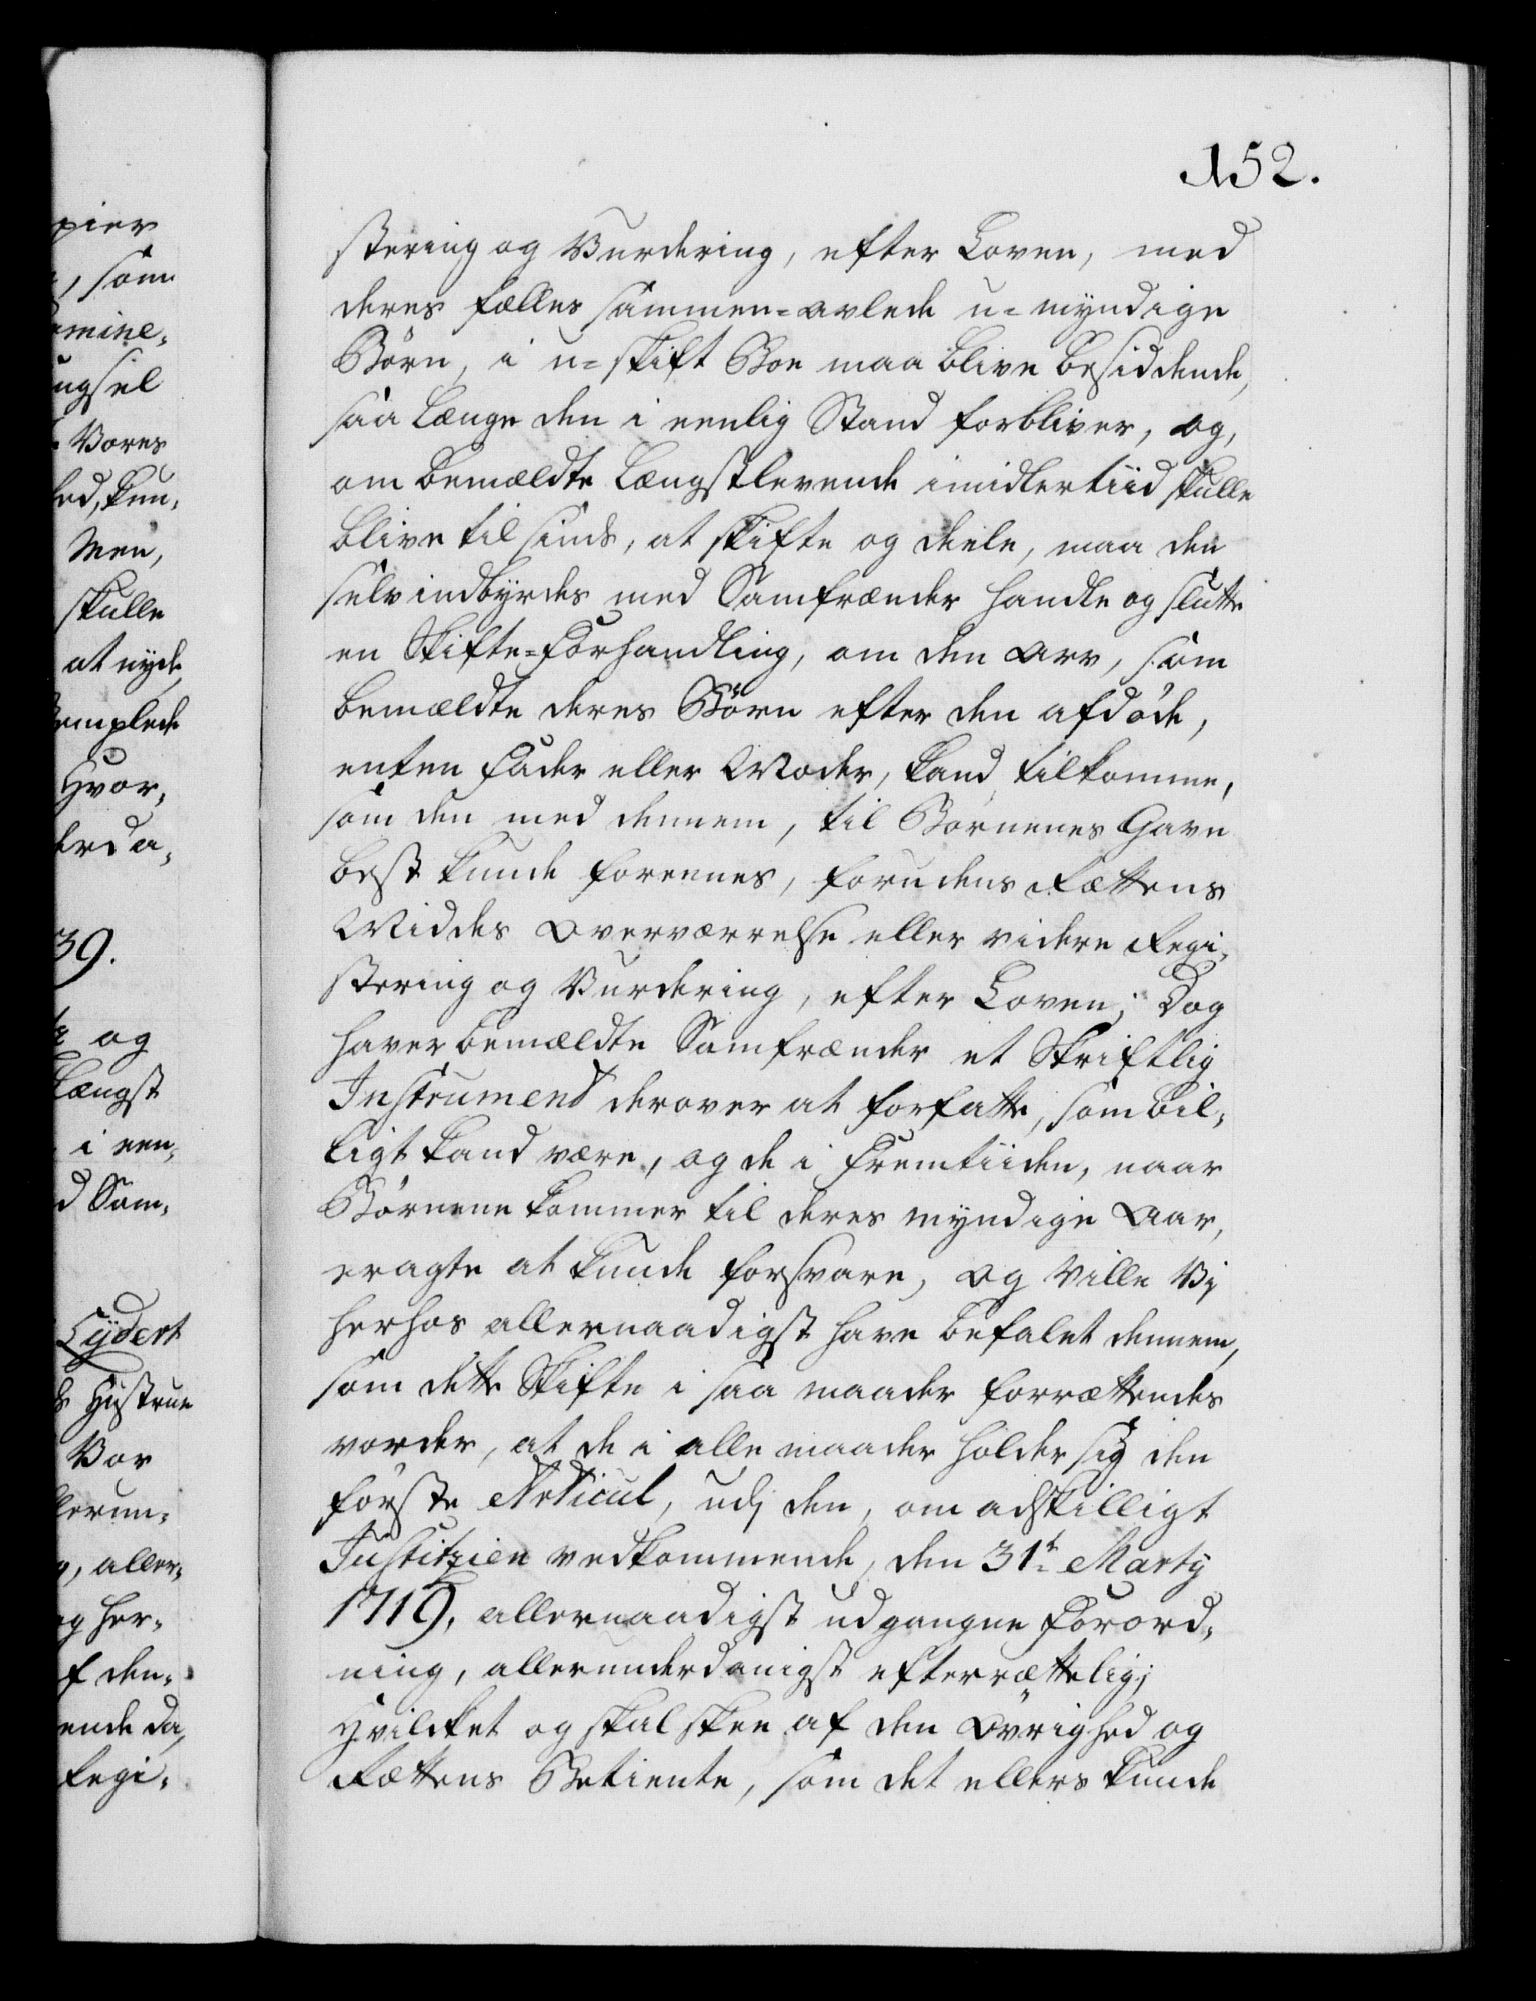 152.
pier
, som
amine,
ngsel
Vores
hed, kun,
Men,
skulle
at nyde,
Stemplede
Hvor,
terda,
39.
og
Længst
i een,
d Sam,
Lydert
Hustrue
Vor
llerun,
, aller,
og her,
f den,
ende da,
Regi,
stering og Vurdering, efter Loven, med
deres fælles sammen=avlede u=myndige
Børn, i u=skift Boe maa blive besiddende,
saa længe den i eenlig Stand forbliver, og,
om bemældte Længstlevende imidlertiid skulle
blive til sinds, at skifte og deele, maa den
selv indbyrdes med Samfrænder handle og slutte
en Skifte=Forhandling, om den Arv, som
bemældte deres Børn efter den afdøde,
enten Fader eller Moder, kand tilkomme,
som den med dennem, til Børnenes Gavn
best kunde foreenes, forudens Rættens
Middes Overværrelse eller videre Regi,
stering og Vurdering, efter Loven; Dog
haver bemældte Samfrænder et Skriftlig
Instrument derover at forfatte, som bil,
ligt kand være, og de i Fremtiiden, naar
Børnene kommer til deres myndige Aar,
eragte at kunde forsvare, og Ville Vi
herhos allernaadigst have befalet dennem,
som dette Skifte i saa maader forrættendes
vorder, at de i alle maader holder sig den
første Articul, udj den, om adskilligt
Justitzien vedkommende, den 31t Martij
1719, allernaadigst udgangne Forord,
ning, allerunderdanigst efterrættelig;
Hvilcket og skal skee af den Øvrighed og
Rættens Betiente, som det ellers kunde